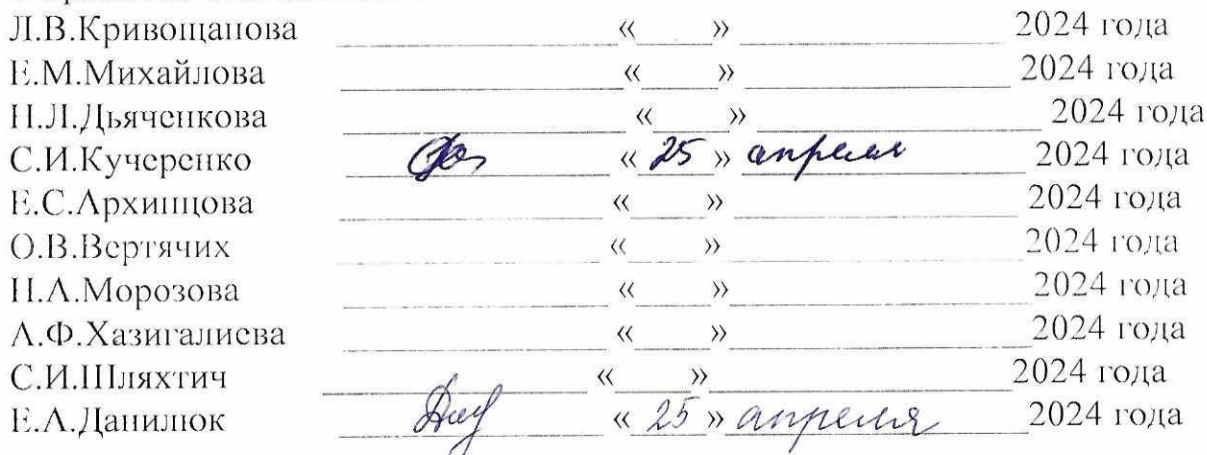 Л.В.Кривощапова «____» 2024 года
Е.М.Михайлова «____» 2024 года
Н.Л.Дьяченкова «____» 2024 года
С.И.Кучеренко «25» апреля 2024 года
Е.С.Архипцова «____» 2024 года
О.В.Вертячих «____» 2024 года
Н.А.Морозова «____» 2024 года
А.Ф.Хазигалиева «____» 2024 года
С.И.Шляхтич «____» 2024 года
Е.А.Данилюк «25» апреля 2024 года